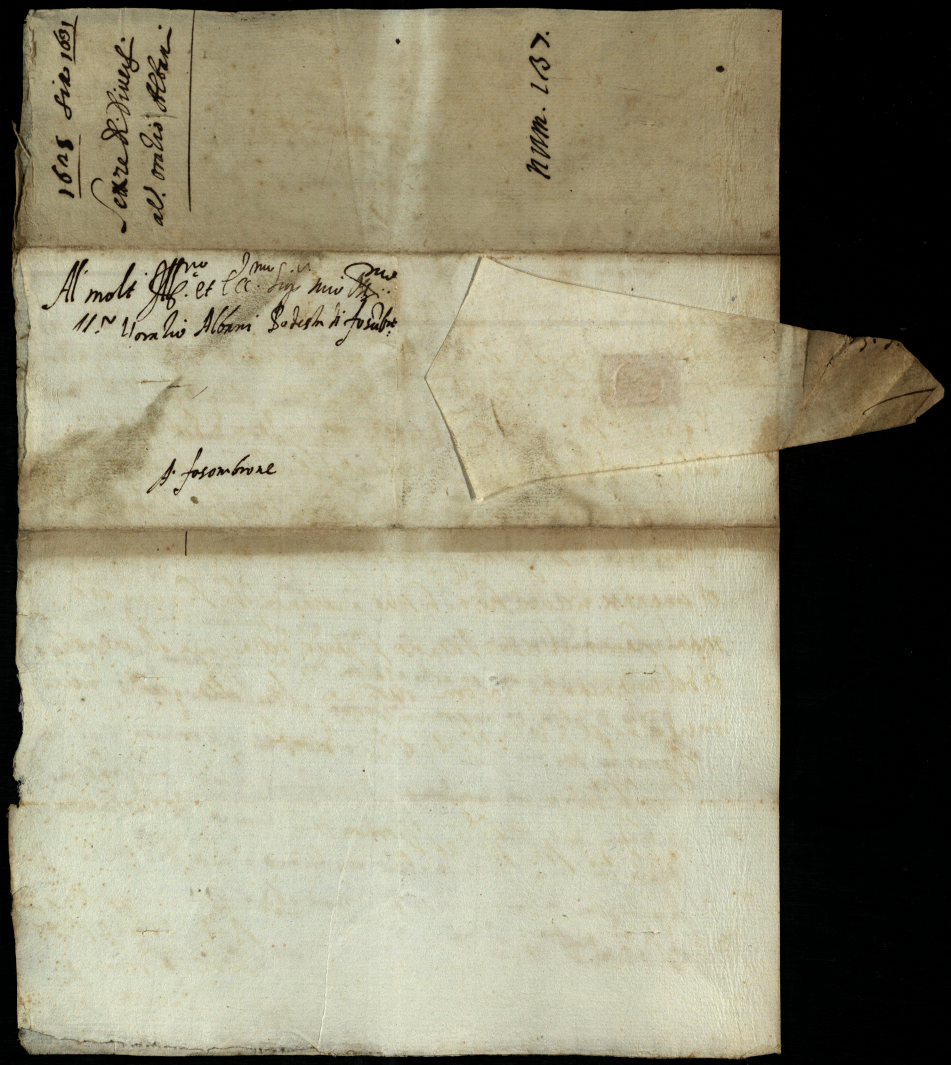 1625 sin 1631
Lettere di diversi
al s. oratio Albani
num. 137.
Al molt Ill.re et Ecc.mo Sig.r mio P.rone
Il S.r Horatio Albani Podestà di fosombr.e
A. fosombrone